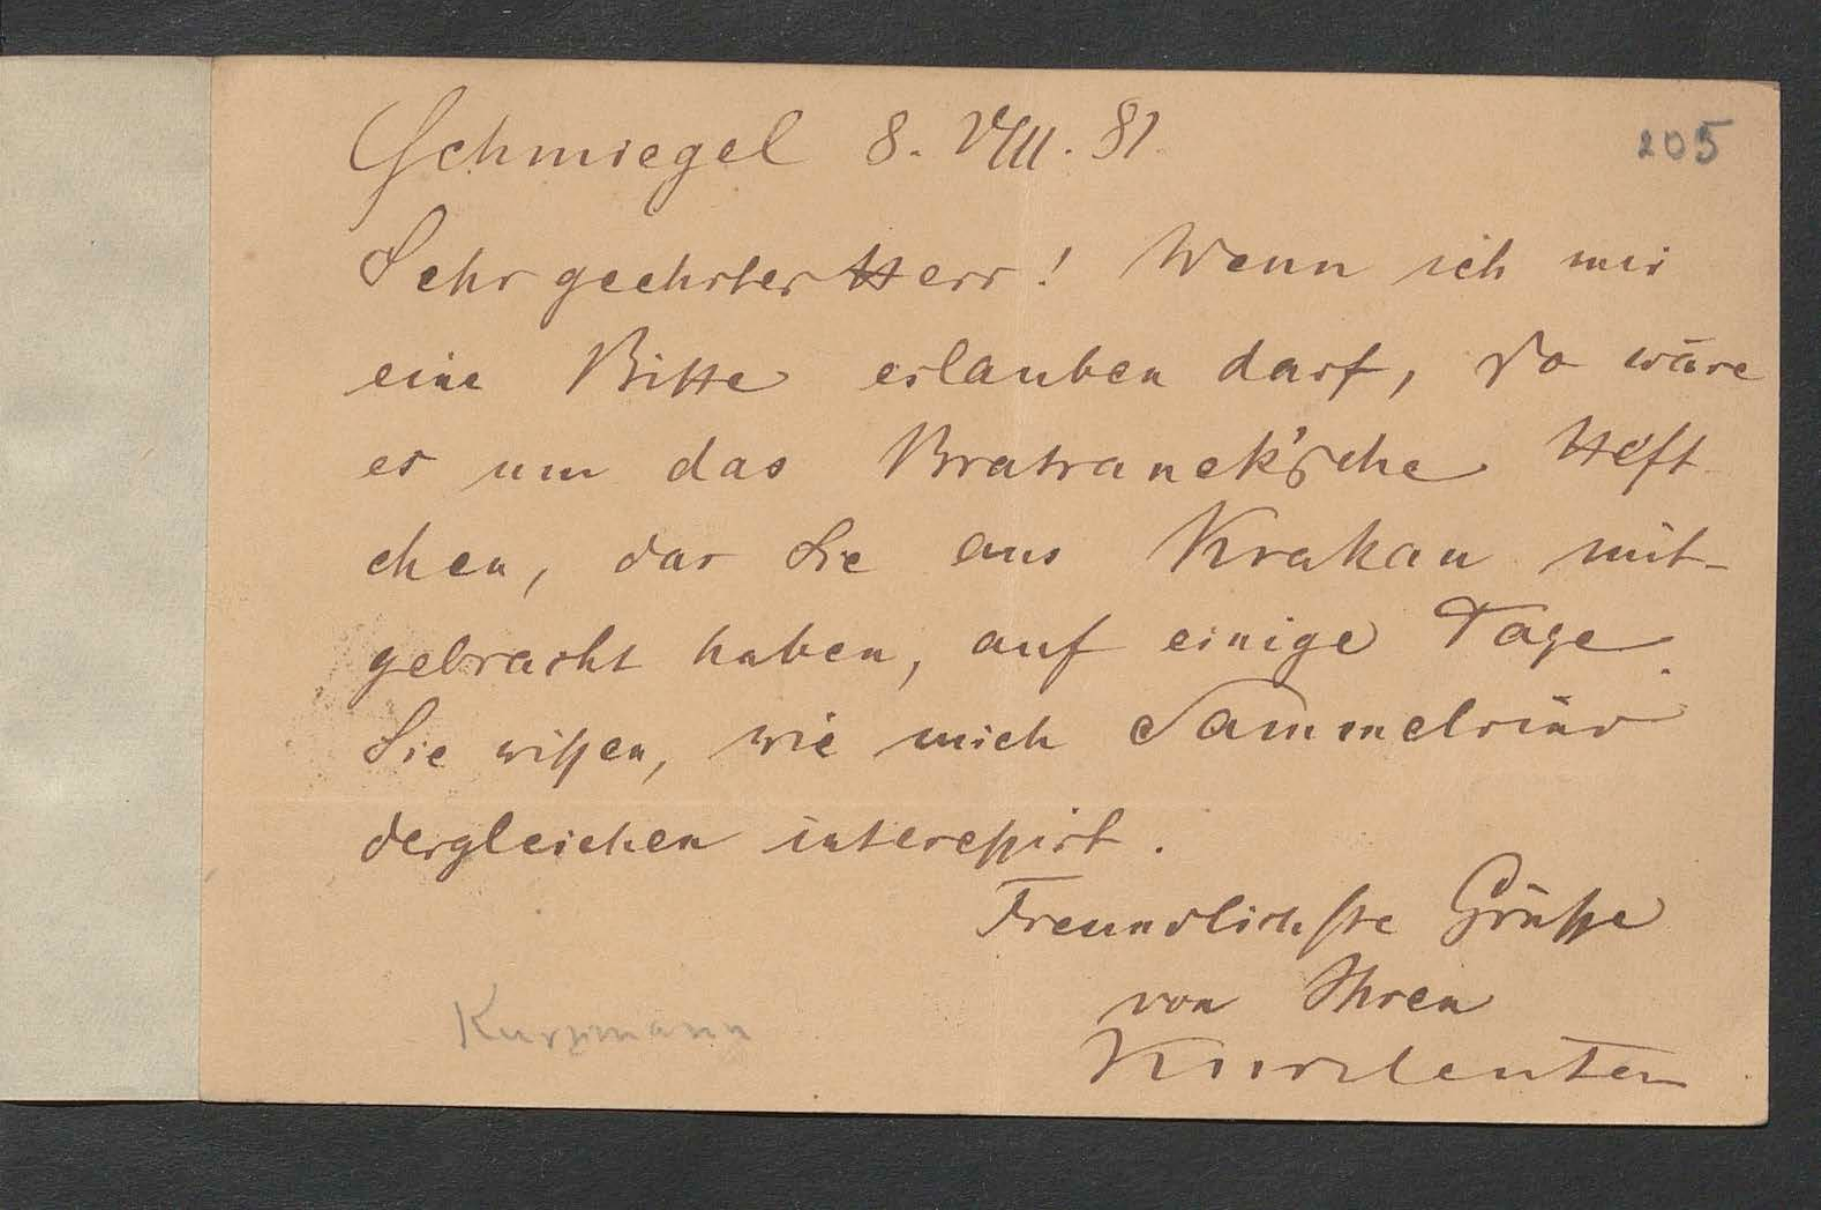 Schmiegel 8. VIII. 81.
205
Sehr geehrter Herr! Wenn ich mir
eine Bitte erlauben darf, so wäre
es um das Bratranek'sche Heft
chen, das Sie aus Krakau mit-
gebracht haben, auf einige Tage.
Sie wißen, wie mich
dergleichen intereßirt.
Freundlichste Grüße
von Ihren
Kurzmann